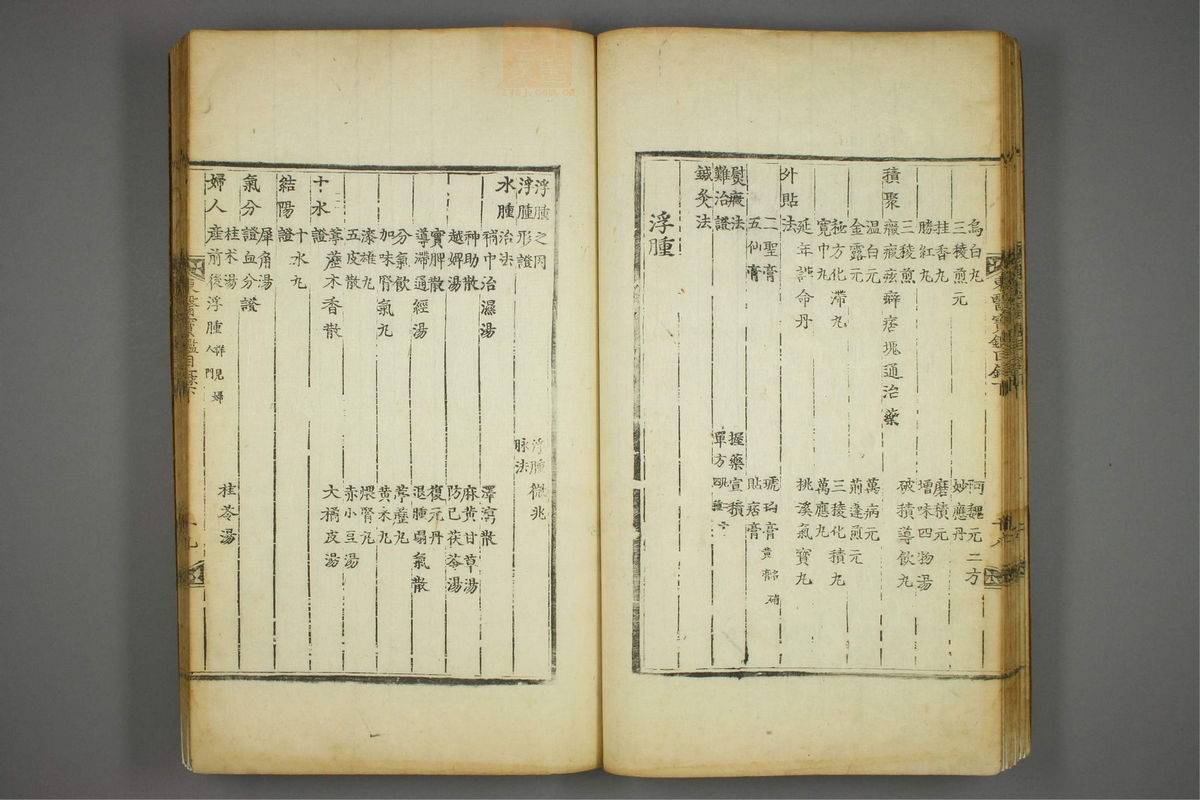 烏白丸 阿魏元二方
三稜煎元 妙應丹
桂香丸 磨積元
勝紅丸 增味四物湯
三稜煎 破積導飮丸
積聚癥瘕痃癖痞塊通治藥
溫白元 萬病元
金露元 荊蓬煎元
極方化滯丸 三稜化積丸
寬中丸 萬應丸
延年護命丹 挑溪氣寶丸
外貼法
二聖膏 琥珀膏
五仙膏 貼痞膏
熨癥法 握藥宣積
難治證 單方
鍼灸法
浮腫
浮腫之因 浮腫徵兆
浮腫形證 脉法
水腫治法
補中治濕湯 澤瀉散
神助散 麻黃甘草湯
越婢湯 防己茯苓湯
實脾散 復元丹
導滯通經湯 退腫塌氣散
分氣飮 葶藶丸
加味腎氣丸 黃米丸
漆雄丸 煨腎丸
五皮散 赤小豆湯
葶藶木香散 大橘皮湯
十水證
十水丸
結陽證
犀角湯
氣分證血分證
桂朮湯 桂苓湯
婦人產前後浮腫 詳見婦人門
東醫寶鑑目錄下 十九